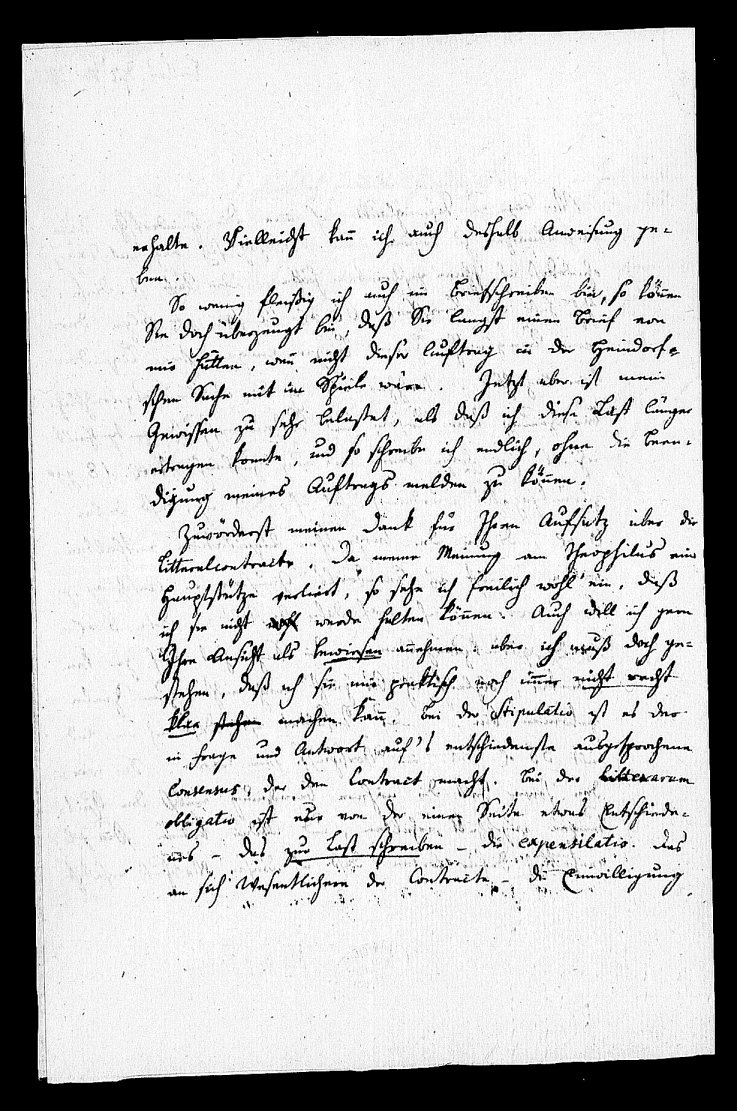 erhalte. Vielleicht kañ ich auch deshalb Anweisung ge-
ben.
So wenig fleißig ich auch im Briefschreiben bin, so köñen
Sie doch überzeugt sein, daß Sie längst einen Brief von
mir hätten, weñ nicht dieser Auftrag in der Heindorf-
schen Sache mit im Spiele wäre. Jetzt aber ist mein
Gewissen zu sehr belastet, als daß ich diese Last länger
ertragen konnte, und so schreibe ich endlich, ohne die Been-
digung meines Auftrags melden zu köñen.
Zuvörderst meinen Dank für Ihren Aufsatz über die
Litteralcontracte. Da meine Meinung am Theophilus eine
Hauptstütze verliert, so sehe ich freilich wohl ein, daß
ich sie nicht werde halten köñen. Auch will ich gern
Ihre Ansicht als bewiesen annehmen: aber ich muß doch ge-
stehen, daß ich sie mir praktisch noch im̃er nicht recht
klar machen kañ. Bei der Stipulatio ist es der
in Frage und Antwort auf's entschiedenste ausgesprochene
Consensus, der den Contract macht. Bei der Litterarum
obligatio ist nur von der einen Seite etwas Entschiede-
nes – das zur Last schreiben – die expensilatio. Das
an sich Wesentlichere der Contracte – die Einwilligung